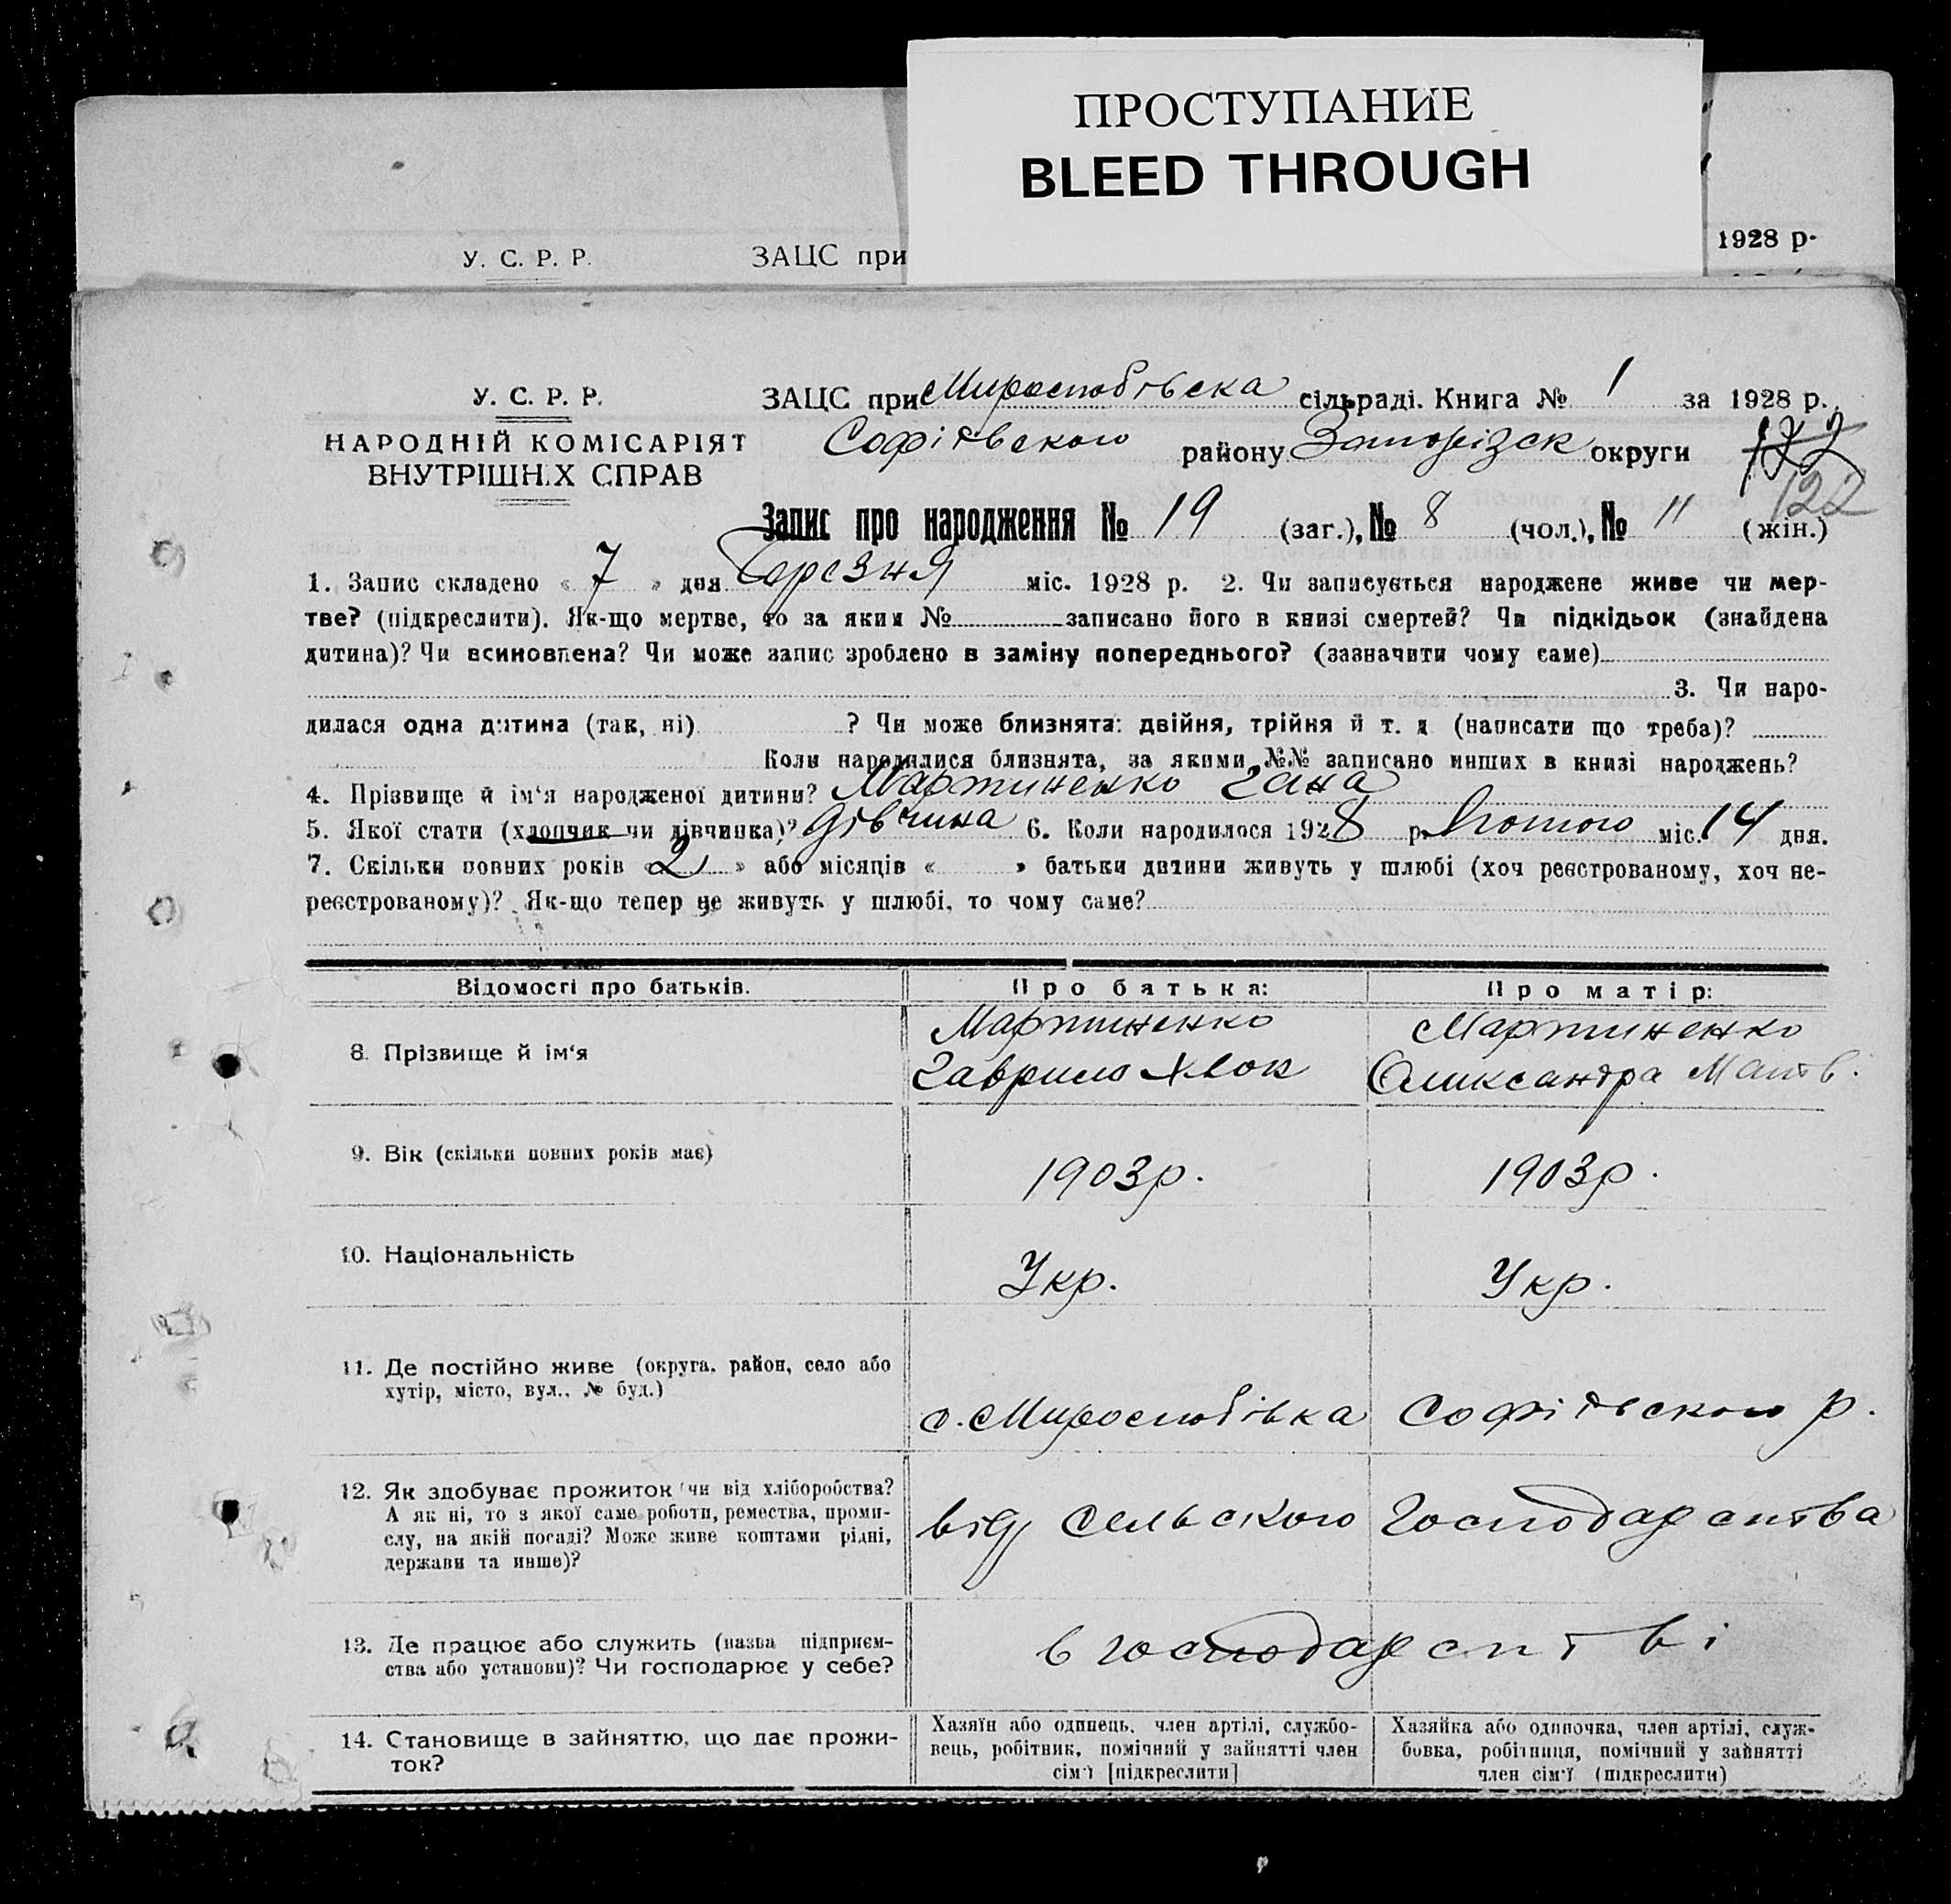 ПРОСТУПАНИЕ
BLEED THROUGH
У. С. Р. Р. ЗАЦС при 1928 р.
У. С. Р. Р.
НАРОДНІЙ КОМІСАРІЯТ
ВНУТРІШН.Х СПРАВ
ЗАЦС при Миролюбівска сільраді. Книга № 1 за 1928 р.
Софіївского району Запорізск округи
122
Запис про народження № 19 (заг.), № 8 (чол.), № 11 (жін.)
1. Запис складено « 7 » дня Березня міс. 1928 р. 2. Чи записується народжене живе чи мер-
тве? (підкреслити). Як-що мертве, то за яким № записано його в книзі смертей? Чи підкідьок (знайдена
дитина)? Чи всиновлена? Чи може запис зроблено в заміну попереднього? (зазначити чому саме)
3. Чи наро-
дилася одна дитина (так, ні) ? Чи може близнята: двійня, трійня й т. д (написати що треба)?
Коли народилися близнята, за якими №№ записано инших в книзі народжень?
4. Прізвище й ім'я народженої дитини? Мартиненко Гана
5. Якої стати (хлопчик чи дівчинка)? дівчина 6. Коли народилося 1928 р. Лютого міс. 14 дня.
7. Скільки повних років « 2 » або місяців « » батьки дитини живуть у шлюбі (хоч реєстрованому, хоч не-
реєстрованому)? Як-що тепер не живуть у шлюбі, то чому саме?
Відомості про батьків. Про батька: Про матір:
8. Прізвище й ім'я
Мартиненко
Гаврило Хвок
Мартиненко
Оликсандра Матв.
9. Вік (скільки повних років має) 1903р. 1903р.
10. Національність Укр. Укр.
11. Де постійно живе (округа, район, село або
хутір, місто, вул., № буд.)
с. Миролюбівка Софіївского р.
12. Як здобуває прожиток чи від хліборобства?
А як ні, то з якої саме роботи, ремества, проми-
слу, на якій посаді? Може живе коштами рідні,
держави та инше)?
від сельского господарства
13. Де працює або служить (назва підприєм-
ства або установи)? Чи господарює у себе?
в господарстві
14. Становище в зайняттю, що дає прожи-
ток?
Хазяїн або одинець, член артілі, службо-
вець, робітник, помічний у зайнятті член
сім'ї [підкреслити]
Хазяйка або одиночка, член артілі, служ-
бовка, робітниця, помічний у зайнятті
член сім'ї (підкреслити)